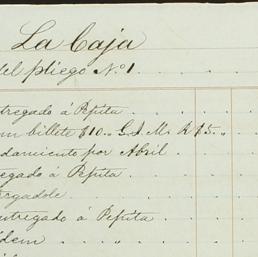 La Caja
del pliego Nº 1
tregado á Pepita
un billete $10.. G. J. M. R $5..
damiento por Abril
egado á Pepita
rgadole
ntregado á Pepita
idem "